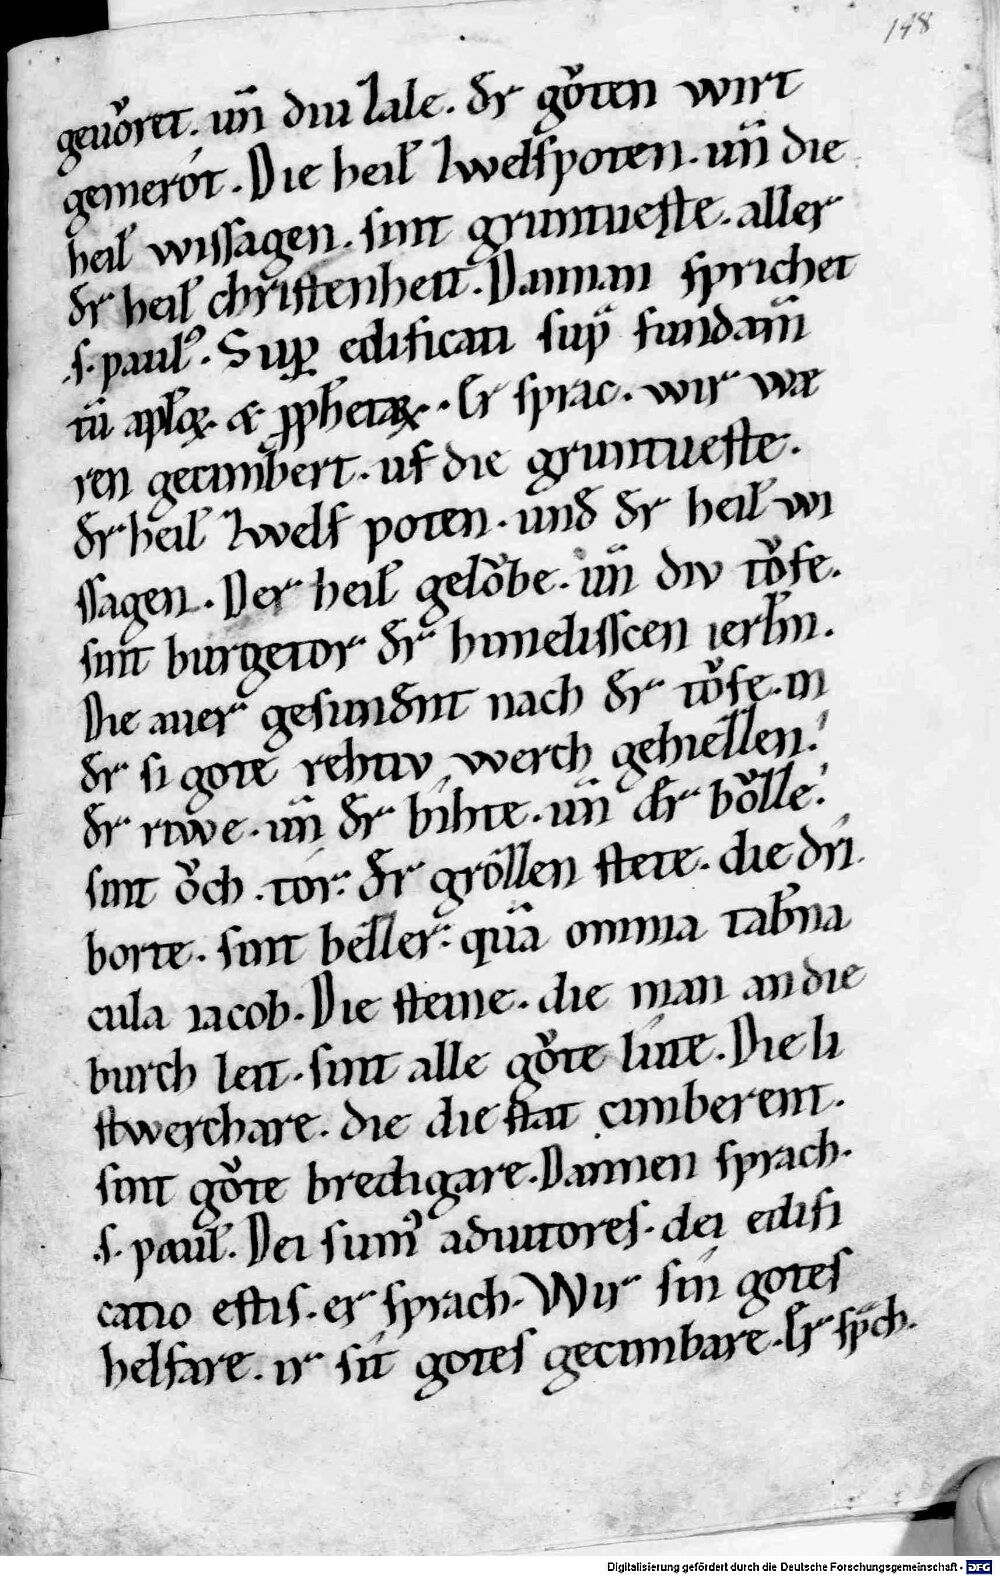 148
gevǒret. uñ diu zale. dˢ gǒten wirt
gemerót. Die heil̄ zwelfpoten. uñ die
heil̄ wissagen. sint gruntueste. aller
dˢ heil̄ christenheit. Dannan sprichet
.s. paul⁹. Sup̲ edificati sup̄ fundam̄
tū apl̄oꝝ. & ꝓphetaꝝ. Er sprac. wir wæ
ren gecimbert. uf die gruntueste.
dˢ heil̄ zwelf poten. unđ dˢ heil̄ wi
ssagen. Der heil̄ gelǒbe. uñ div tǒfe.
sint burgetor dˢ himelisscen ierl̄m.
Die auer gesundˢnt nach dˢ tǒfe. in
dˢ si gote rehtiv werch gehiezzen.
dˢ riwe. uñ dˢ bíhte. uñ dˢ bǒzze.
sint ǒch. tór. dˢ grôzzen stete. die drí
borte. sint bezzer. quā omnia tab̄na
cula iacob. Die steine. die man an die
burch leit. sint alle gǒte lívte. Die li
stwerchare. die die stat cimberent.
sint gǒte bredigare. Dannen sprach.
.s. paul̄. Dei sum⁹ adiutores. dei edifi
catio estis. er sprach. Wir sín gotes
helfare. ir sít gotes gecimbare. Er sp̄ch.
Digitalisierung gefördert durch die Deutsche Forschungsgemeinschaft - DFG